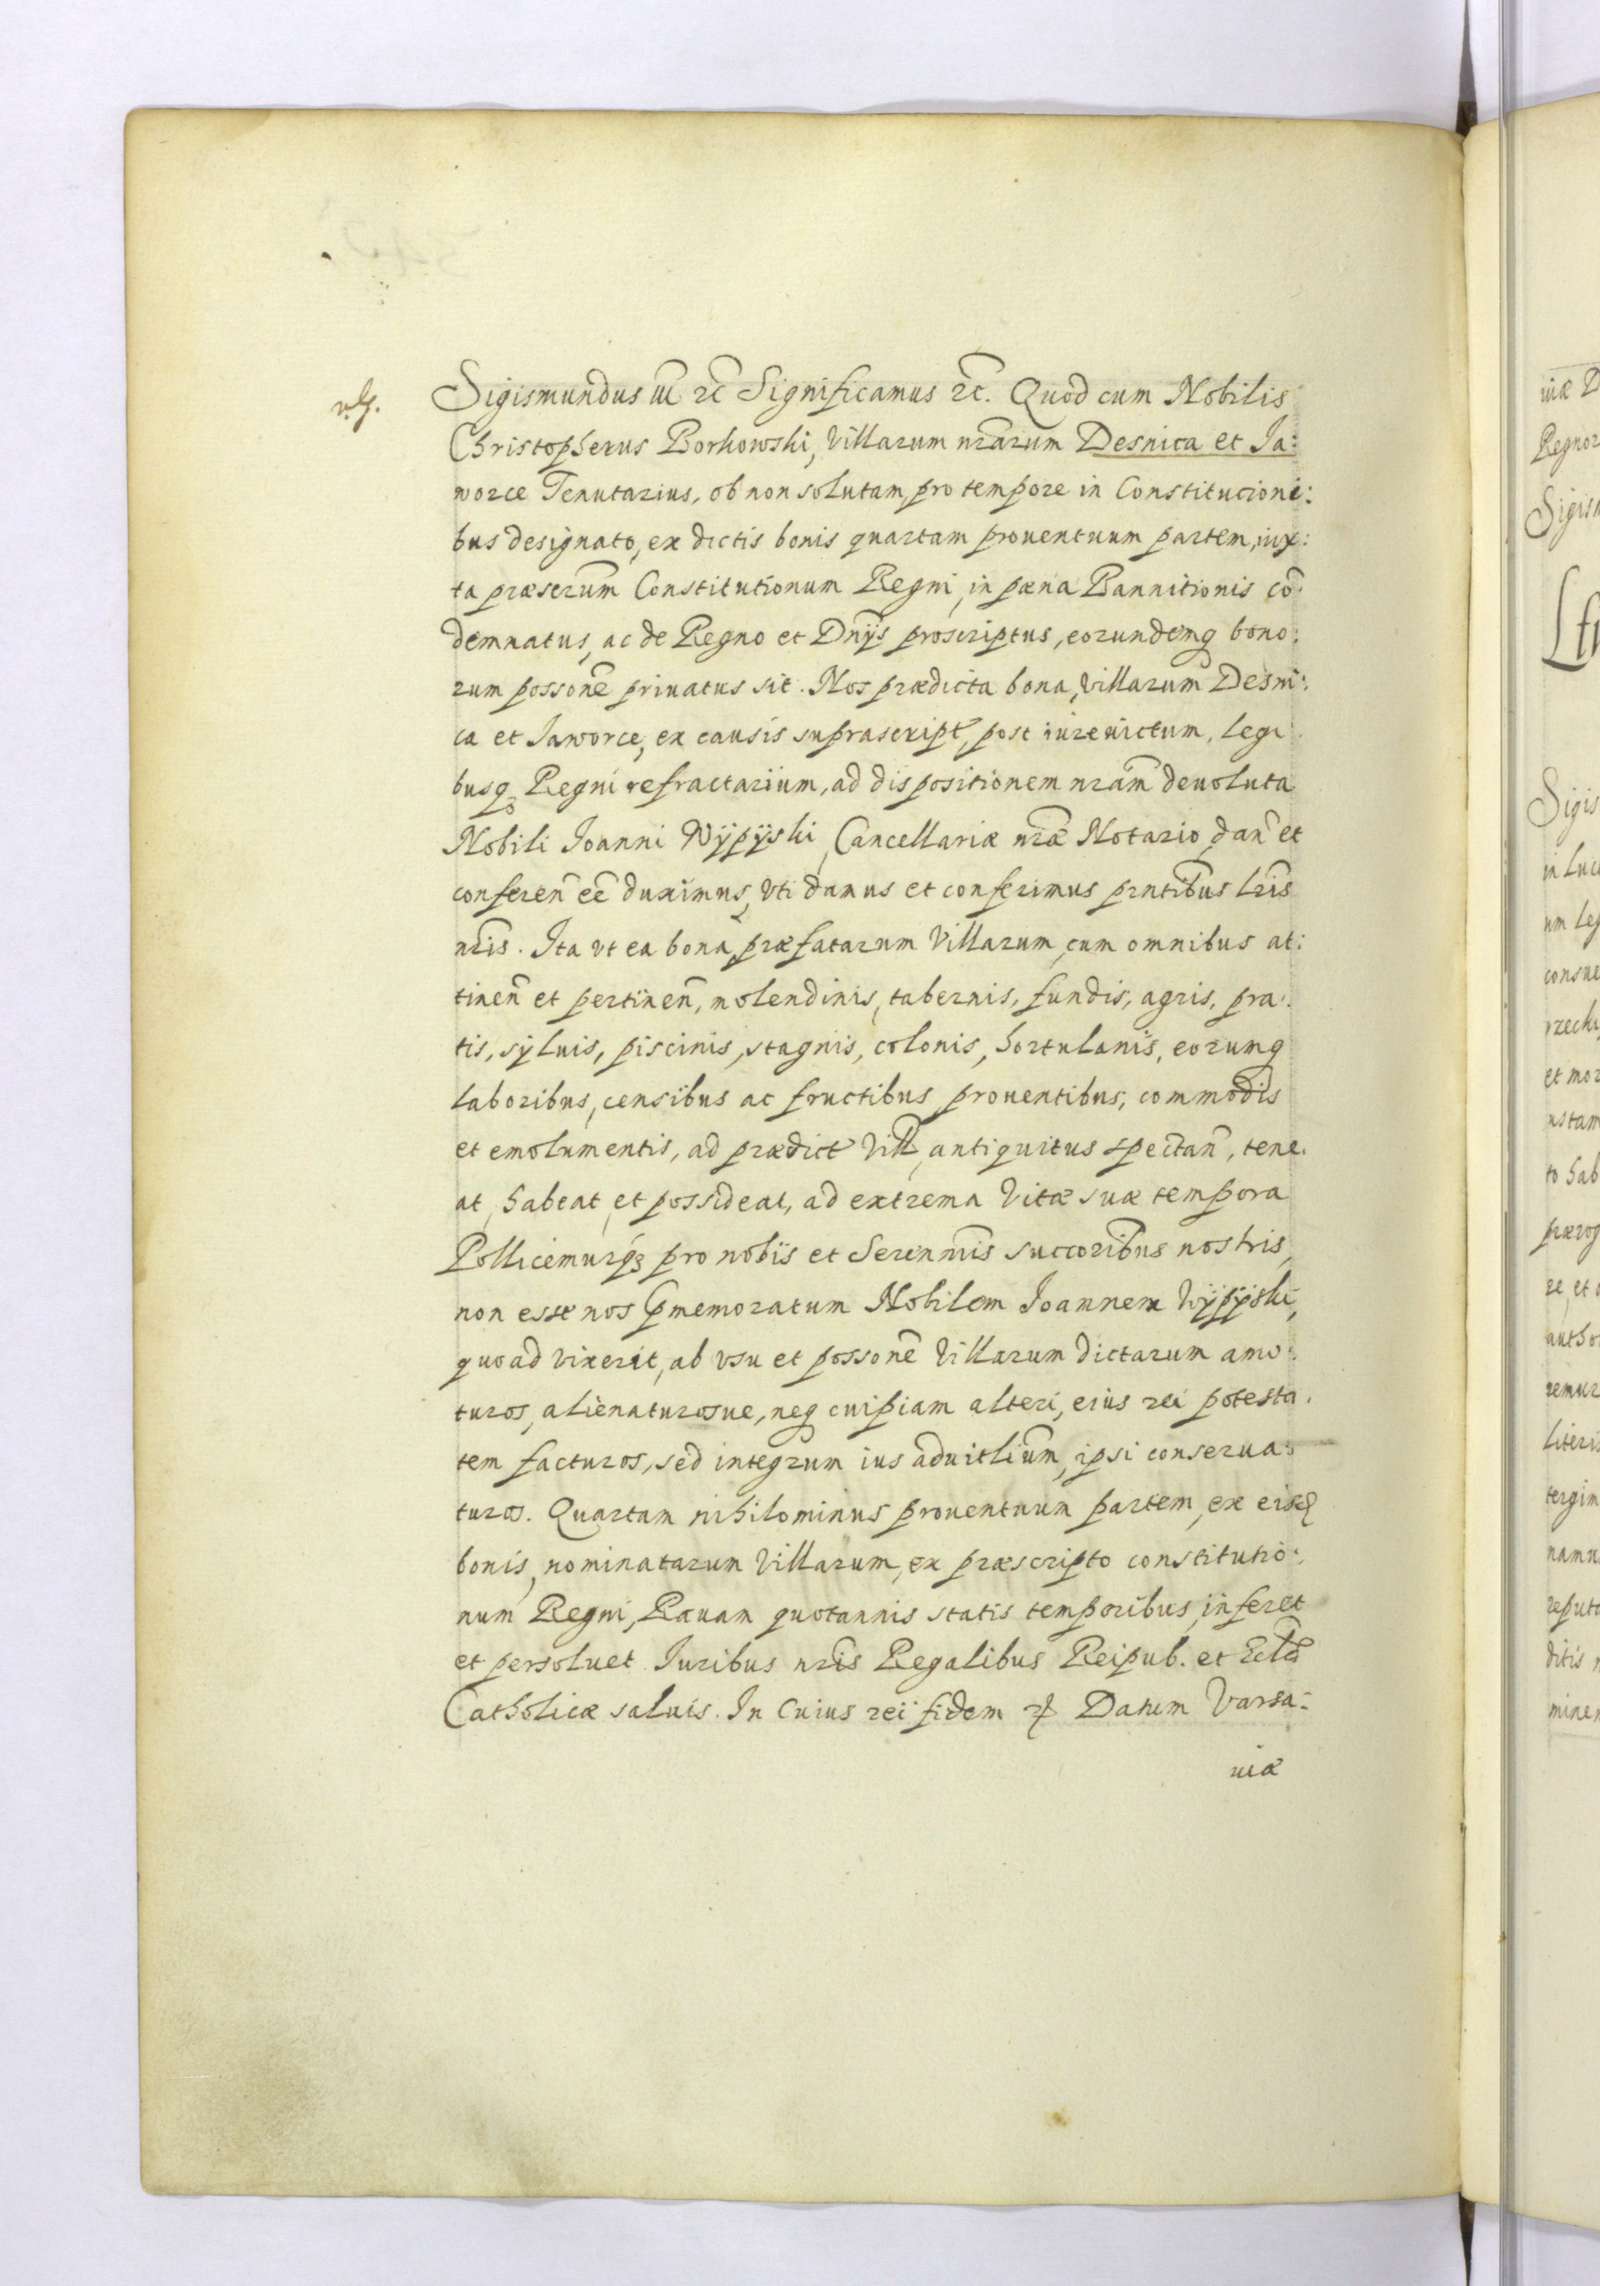 Sigismundus III &c Significamus &c. Quod cum Nobilis
Christopherus Borkowski, Villarum nrarum Desnica et Ja:
worce Tenutarius, ob non solutam, pro tempore in Constitucioni:
bus designato, ex dictis bonis quartam prouentuum partem, iux:
ta præscrum Constitutionum Regni, in pæna Bannitionis co:
demnatus, ac de Regno et Dnijs proscriptus, eorundemq bono:
rum possone priuatus sit. Nos prædicta bona, Villarum Desni:
ca et Jaworce, ex causis suprascript, post iure uictum, legi
busq Regni refractarium, ad dispositionem nram deuoluta
Nobili Joanni Wÿpÿski, Cancellariæ nræ Notario, dan et
conferen ee duximus, Vti damus et conferimus pntibus Lris
nris. Ita vt ea bona præfatarum Villarum, cum omnibus at:
tinen et pertinen, molendinis, tabernis, fundis, agris, pra:
tis, syluis, piscinis, stagnis, colonis, hortulanis, eorumq
laboribus, censibus ac fructibus, prouentibus, commodis
et emolumentis, ad prædict Vill, antiquitus spectan, tene:
at, habeat, et possideat, ad extrema Vitæ suæ tempora
Pollicemurq pro nobis et Serenmis succoribus nostris,
non esse nos pmemoratum Nobilem Joannem Wÿpÿski,
quoad vixerit, ab vsu et possone Villarum dictarum amo:
turos, alienaturosue, neq cuipiam alteri, eius rei potesta:
tem facturos, sed integrum ius aduitlium, ipsi conserua:
turos. Quartam nihilominus prouentuum partem, ex eisd
bonis, nominatarum Villarum, ex præscripto constitutio:
num Regni, Rauam quotannis statis temporibus, inferet
et persoluet. Juribus nris Regalibus Reipub. et Eclæ
Catholicæ saluis. In Cuius rei fidem &c Datum Varsa:
uiæ